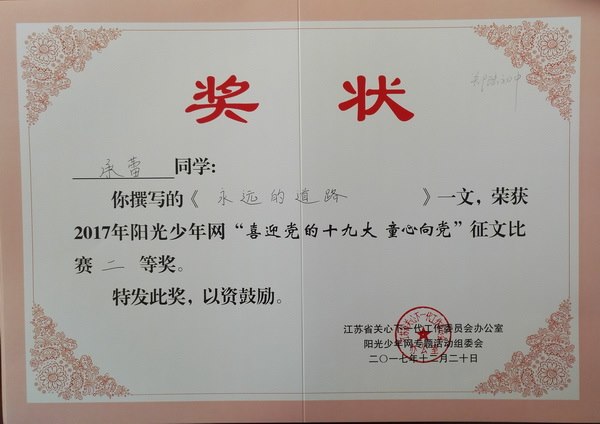 奖 状
承蕾 同学:
你撰写的《 永远的道路 》一文,荣获
2017年阳光少年网“喜迎党的十九大 童心向党”征文比
赛 二 等奖。
特发此奖,以资鼓励。
江苏省关心下一代工作委员会办公室
阳光少年网专题活动组委会
二〇一七年十二月二十日